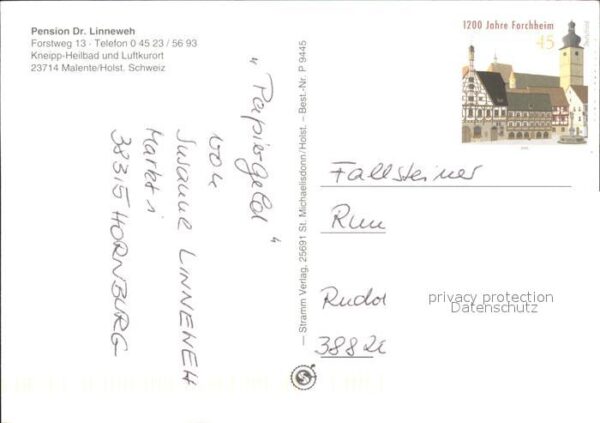 Pension Dr. Linneweh
Forstweg 13 · Telefon 0 45 23 / 56 93
Kneipp-Heilbad und Luftkurort
23714 Malente/Holst. Schweiz
„Papiergeld“
von
Susanne LINNEWEH
Markt 1
38315 HORNBURG
— Stramm Verlag, 25691 St. Michaelisdonn/Holst. — Best.-Nr. P 9445
1200 Jahre Forchheim
45
Fallsteiner
Run
Rudol
privacy protection
Datenschutz
3882